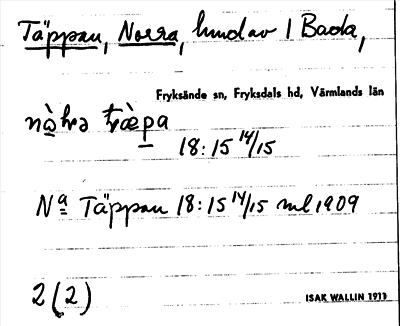 Täppan, Norra, hmd av 1 Bada,
Fryksände sn, Fryksdals hd, Värmlands län
18:15 14/15
Na Täppan 18:15 14/15 ml 1909
2(2)
ISAK WALLIN 1911